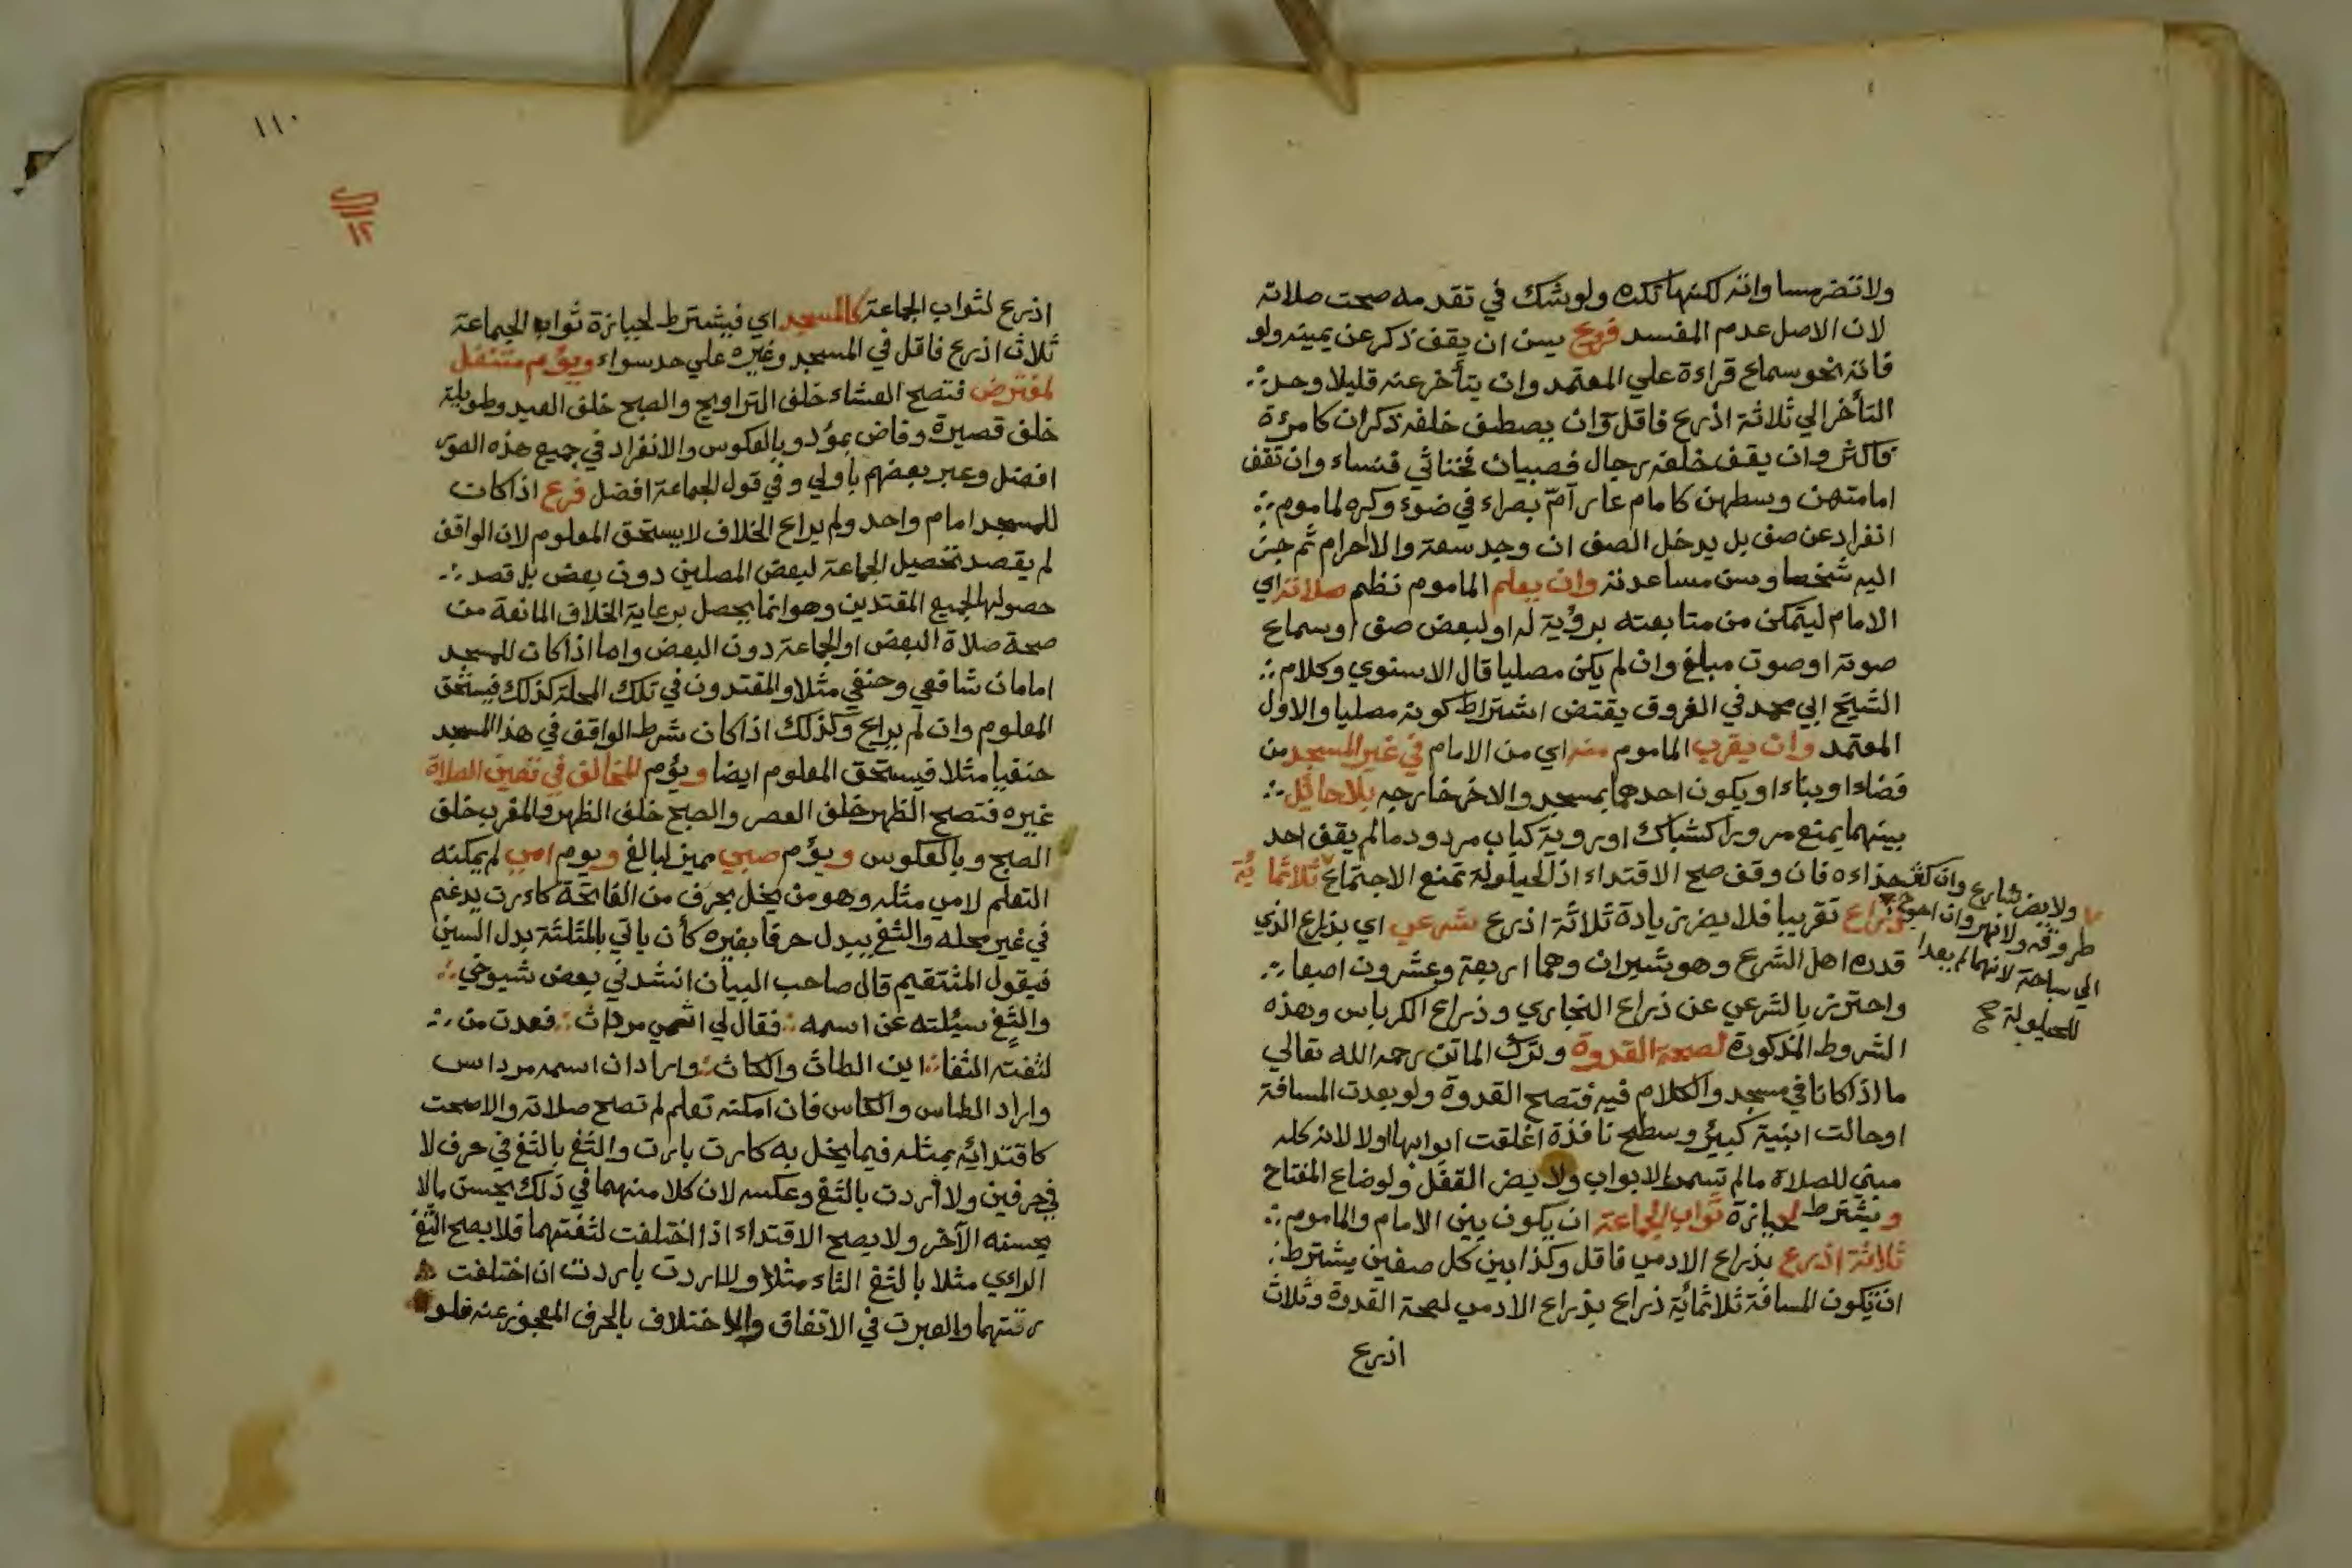 ولا تضر مساواته لكنها تكره ولو شك في تقدمه صحت صلاته
لان الاصل عدم المفسد فرع يسن ان يقف ذكر عن يمينه ولو
فاته نحو سماع قراءة علي المعتمد وان يتأخر عنه قليلا وحد
التأخر الي ثلاثة اذرع فاقل وان يصطف خلفه ذكران كامرءة
فاكثر وان يقف خلفه رجال فصبيان فخناثي فنساء وان تقف
امامتهن وسطهن كامام عار أمّ بصراء في ضوء وكره لماموم
انفراد عن صف بل يدخل الصف ان وجد سعة والا احرام ثم جر
اليه شخصا وسن مساعدته وان يعلم الماموم نظم صلاته اي
الامام ليتمكن من متابعته برؤية له او لبعض صف او سماع
صوته او صوت مبلغ وان لم يكن مصليا قال الاسنوي وكلام
الشيخ ابي محمد في الفروق يقتض اشتراط كونه مصليا والاول
المعتمد وان يقرب الماموم منه اي من الامام في غير المسجد من
فضاء او بناء او يكون احدهما بمسجد والاخر خارجه بلا حائل
بينهما يمنع مرورا كشباك او روية كباب مردود ما لم يقف احد
حذاءه فان وقف صح الاقتداء اذ الحيلولة تمنع الاجتماع ثلاثمائة
ذراع تقريبا فلا يضر زيادة ثلاثة اذرع شرعي اي بذراع الذي
قدره اهل الشرع وهو شبران وهما اربعة وعشرون اصبعا
واحترز بالشرعي عن ذراع النجاري وذراع الكرباس وهذه
الشروط المذكورة لصحة القدوة وترك الماتن رحمه الله تعالي
ما اذا كانا في مسجد والكلام فيه فتصح القدوة ولو بعدت المسافة
او حالت ابنية كبير وسطح نافذة اغلقت ابوابها اولا لانه كله
مبني للصلاة ما لم تسمر الابواب ولا يض القفل ولوضاع المفتاح
ويشترط لحيازة ثواب الجماعة ان يكون بين الامام والماموم
ثلاثة اذرع بذراع الادمي فاقل وكذا بين كل صفين يشترط
ان تكون المسافة ثلاثمائة ذراع بذراع الادمي لصحة القدوة وثلاث
اذرع
ولا يض شارع وان كثر
طروقه ولا نهر وان احوج
الي سباحة لانهما لم يعدا
للحيلولة صح
١١٠
١٢
اذرع لثواب الجماعة كالمسجد اي فيشترط لحيازة ثواب الجماعة
ثلاث اذرع فاقل في المسجد وغيره علي حد سواء ويؤم متنفل
لمفترض فتصح العشاء خلف التراويح والصبح خلف العيد وطويلة
خلف قصيرة وقاض بمؤد وبالعكوس والانفراد في جميع هذه الصور
افضل وعبر بعضهم باولي وفي قول الجماعة افضل فرع اذا كان
للمسجد امام واحد ولم يراع الخلاف لا يستحق المعلوم لان الواقف
لم يقصد تحصيل الجماعة لبعض المصلين دون بعض بل قصد
حصولها لجميع المقتدين وهو انما يحصل برعاية الخلاف المانعة من
صحة صلاة البعض او الجماعة دون البعض واما اذا كان للمسجد
امامان شافعي وحنفي مثلا والمقتدون في تلك المحلة كذلك فيستحق
المعلوم وان لم يراع وكذلك اذا كان شرط الواقف في هذا المسجد
حنفيا مثلا فيستحق المعلوم ايضا ويؤم للمخالف في تعين الصلاة
غيره فتصح الظهر خلف العصر والصبح خلف الظهر والمغرب خلف
الصبح وبالعكوس ويؤم صبي مميز لبالغ ويوم امي لم يمكنه
التعلم لامي مثله وهو من يخل بحرف من الفاتحة كارت يدغم
في غير محله والثغ يبدل حرفا بغيره كأن ياتي بالمثلثة بدل السين
فيقول المثتقيم قال صاحب البيان انشدني بعض شيوخي
والثغ سيئلته عن اسمه فقال لي اثمي مرداث فعدت من
لثغته الثغا اين الطاث والكاث واراد ان اسمه مرداس
واراد الطاس والكاس فان امكنه تعلم لم تصح صلاته والا صحت
كاقتدائه بمثله فيما يخل به كارت بارت والثغ بالثغ في حرف لا
في حرفين ولا ارت بالثغ وعكسه لان كلا منهما في ذلك يحسن مالا
يحسنه الآخر ولا يصح الاقتداء اذا اختلفت لثغتهما فلا يصح الثغ
الرائي مثلا بالثغ الثاء مثلا ولا ارت بارت ان اختلفت
رتتهما والعبرت في الاتفاق والاختلاف بالحرف المعجوز عنه فلو